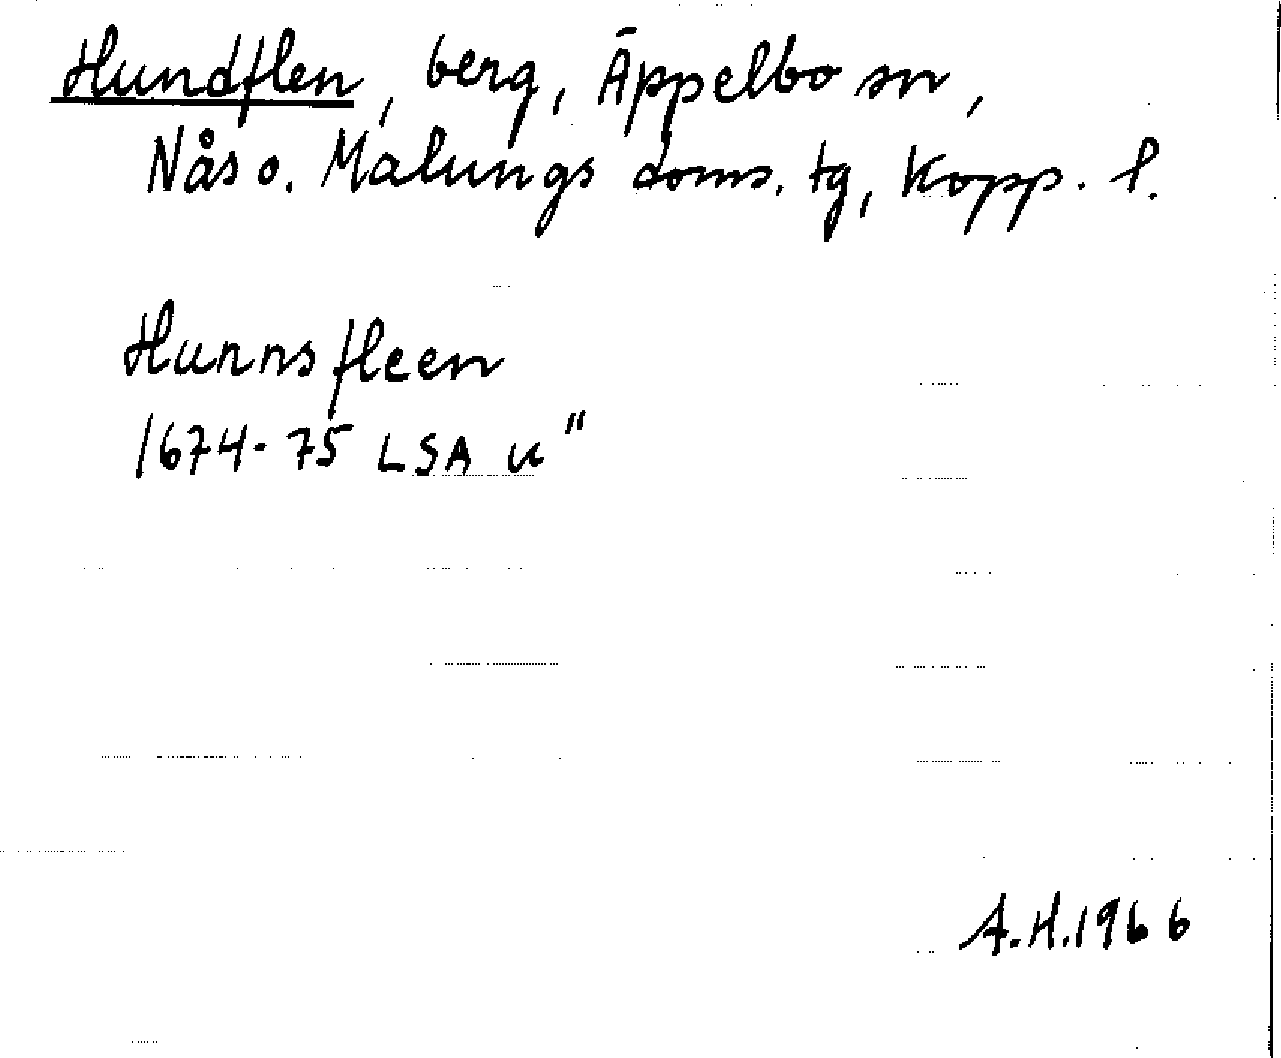 Hundflen, berg, Äppelbo sn,
Nås o. Malungs doms. tg, Kopp. l.
Hunnsfleen
1674-75 LSA u"
A.H. 1966